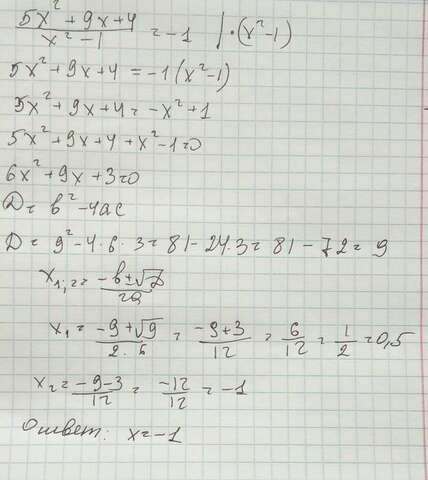 (5x² + 9x + 4)/(x² - 1) = -1 | · (x² - 1)
5x² + 9x + 4 = -1 (x² - 1)
5x² + 9x + 4 = -x² + 1
5x² + 9x + 4 + x² - 1 = 0
6x² + 9x + 3 = 0
D = b² - 4ac
D = 9² - 4 · 6 · 3 = 81 - 24·3 = 81 - 72 = 9
x₁,₂ = (-b ± √D)/(2a)
x₁ = (-9 + √9)/(2 · 6) = (-9 + 3)/12 = 6/12 = 1/2 = 0,5
x₂ = (-9 - 3)/12 = (-12)/12 = -1
Ответ: x = -1